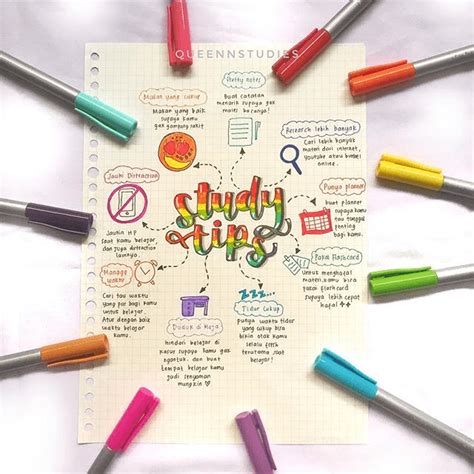 QUEENNSTUDIES
study
tips
Pretty notes
Buat catatan
menarik supaya gak
malas bacanya!
Research lebih banyak
Cari lebih banyak
materi dari internet,
youtube atau bimbel
online.
Punya planner
Buat planner
supaya kamu
gak tunggu
yang penting
bagi kamu.
Pakai flashcard
Untuk menghafal
materi kamu
bisa pakai
flashcard
supaya lebih cepat
hapal
Tidur cukup
zzz...
punya waktu tidur
yang cukup bisa
bikin otak kamu
selalu fresh
terutama saat
belajar!
Duduk di Meja
hindari belajar di
kasur supaya kamu gak
ngantuk. dan buat
tempat belajar kamu
jadi senyaman
mungkin
Manage waktu
Cari tau waktu
yang pas buat
kamu belajar.
Atur dengan baik
waktu belajar
kamu.
Jauhi Distraction
Jauhin HP
saat kamu belajar,
dan juga distraction
lainnya.
Makan yang cukup
Makan yang baik
supaya kamu
gak gampang sakit